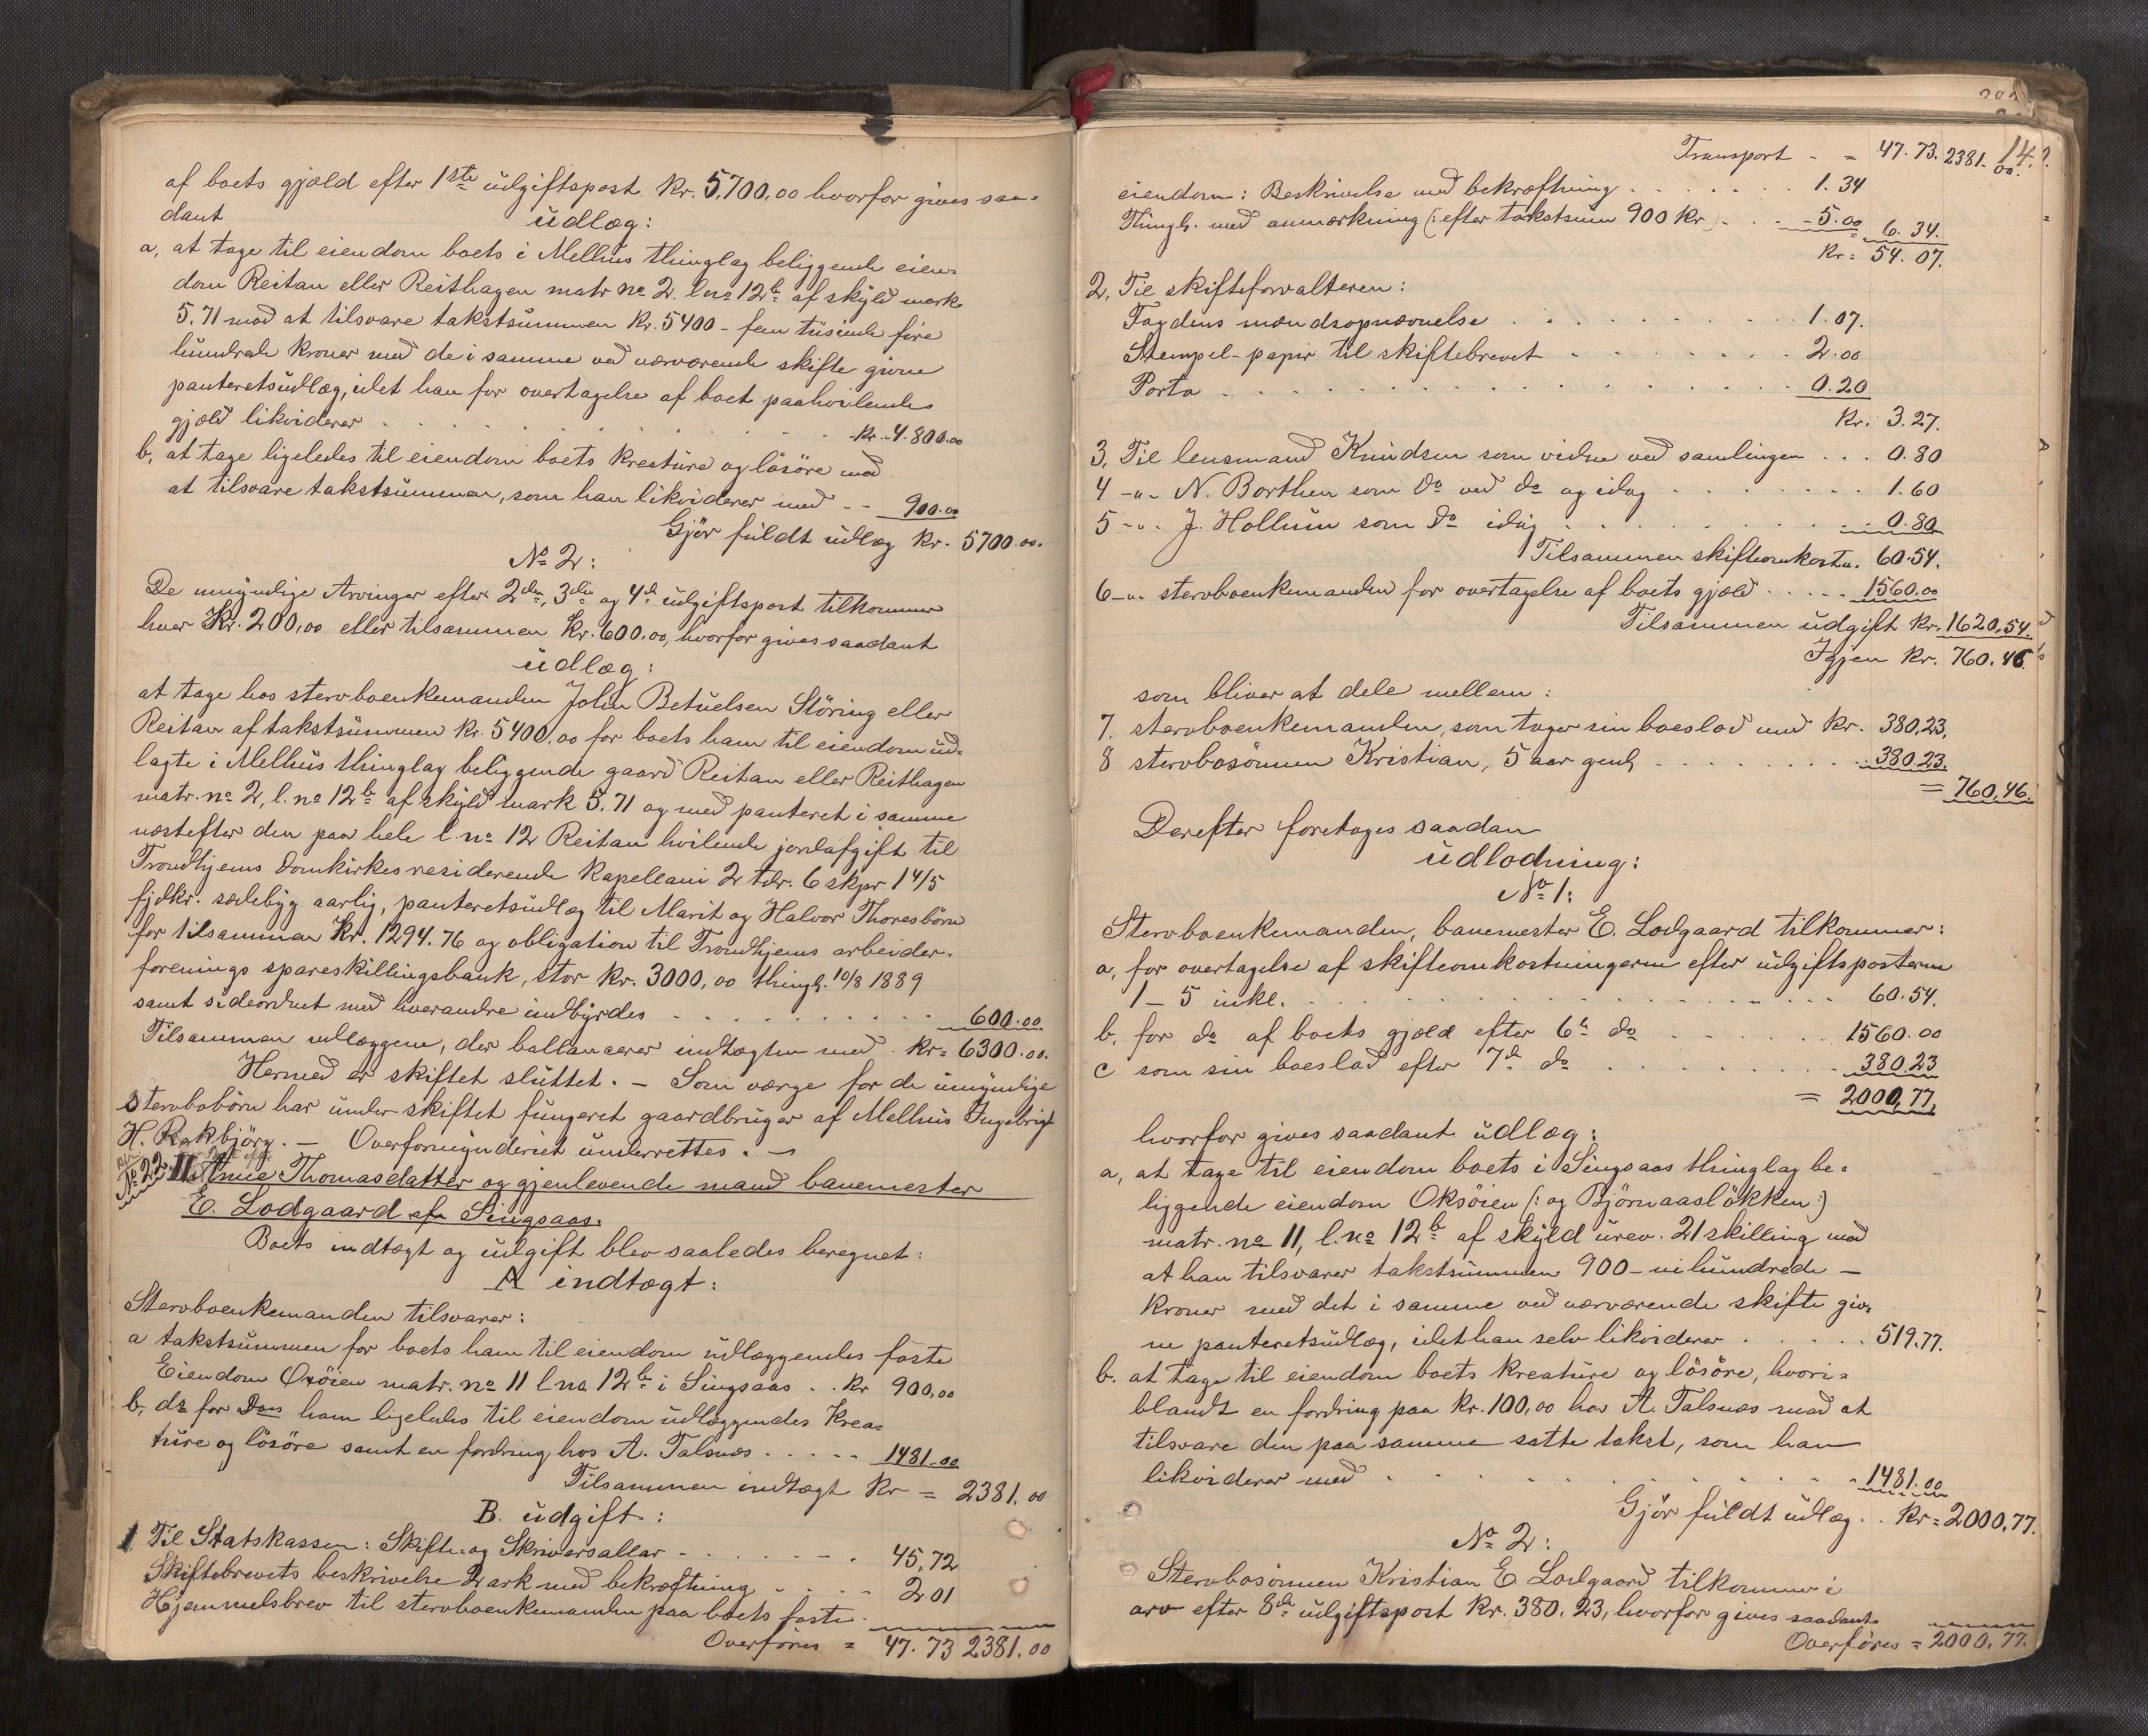 af boets gjæld efter 1ste udgiftspost Kr. 5,700,00 hvorfor gives saa-
dant
udlæg:
a, at tage til eiendom boets i Melhus thinglag beliggende eien-
dom Reitan eller Reithagen matr no 2. l no 12b af skyld mark
5.71 mod at tilsvare takstsummen Kr. 5400 - fem tusinde fire
hundrede Kroner med de i samme ved nærværende skifte givne
panteretsudlæg, idet han for overtagelse af boet paahvilende
gjæld likviderer . . . Kr. 4.800.00
b, at tage ligeledes til eiendom boets kreature og løsøre mod
at tilsvare takstsummen, som han likviderer med - - 900.00
Gjør fuldt udlæg Kr. 5700.00.
No 2:
De umyndige Arvinger efter 2den, 3die og 4de udgiftspost tilkommer
hver Kr. 200,00 eller tilsammen Kr. 600.00, hvorfor gives saadant
udlæg:
at tage hos stervboenkemanden John Betuelsen Støring eller
Reitan af takstsummen Kr. 5400,00 for boets ham til eiendom ud-
lagte i Melhus thinglag beliggende gaard Reitan eller Reithagen
matr. no 2, l. no 12b af skyld mark 5.71 og med panteret i samme
næstefter den paa hele l. no 12 Reitan hvilende jordafgift til
Trondhjems Domkirkes residerende Kapellani 2 tdr. 6 skpr 1 4/5
fjdkr. sædebyg aarlig, panteretsudlæg til Marit og Halvor Thoresbørn
for tilsammen Kr. 1294.76 og obligation til Trondhjems arbeider-
forenings spareskillingsbank, stor Kr. 3000,00 thingl. 10/8 1889
samt sideordnet med hverandre indbyrdes . . . 600.00
Tilsammen udlæggene, der ballancerer indtægten med . Kr = 6300.00.
Hermed er skiftet sluttet. - Som værge for de umyndige
stervbobørn har under skiftet fungeret gaardbruger af Melhus Ingebrigt
H. Rakbjørg. - Overformynderiet underrettes. -
No 22. II. Anne Thomasdatter og gjenlevende mand banemester
E. Lodgaard af Singsaas.
Boets indtægt og udgift blev saaledes beregnet:
A indtægt:
Stervboenkemanden tilsvarer:
a takstsummen for boets ham til eiendom udlæggendes faste
Eiendom Oxøien matr. no 11 l no 12b i Singsaas . . Kr 900,00
b, do for Dens ham ligeledes til eiendom udlæggendes Krea-
ture og løsøre samt en fordring hos A. Talsnæs . . . 1481.00
Tilsammen indtægt Kr = 2381.00
B. udgift:
1 Til Statskassen: Skifte- og Skriversallær - . . . 45,72
Skiftebrevets beskrivelse 2 ark med bekræftning . . . 2.01
Hjemmelsbrev til stervboenkemanden paa boets faste
Overføres = 47.73 2381.00
14
Transport - = 47.73. 2381.00.
eiendom: Beskrivelse med bekræftning . . . 1.34
Thingl. med anmærkning (: efter takstsum 900 Kr) . . . 5.00 6.34.
Kr = 54.07.
2, Til skifteforvalteren:
Fogdens mændsopnævnelse . . . 1.07.
Stempel-papir til skiftebrevet . . . 2.00
Porto . . . 0.20
Kr. 3.27.
3, Til lensmand Knudsen som vidne ved samlingen . . . 0.80
4 -"- N. Borthen som do ved do og idag . . . 1.60
5 -"- J. Hollum som do idag . . . 0.80
Tilsammen skifteomkostn. 60.54.
6 -"- stervboenkemanden for overtagelse af boets gjæld . . . 1560.00
Tilsammen udgift Kr. 1620,54.
Igjen Kr. 760.46
som bliver at dele mellem:
7. stervboenkemanden, som tager sin boeslod med Kr. 380,23,
8 stervbosønnen Kristian, 5 aar gml, . . . 380.23.
= 760,46.
Derefter foretages saadan
udlodning:
No 1:
Stervboenkemanden, banemester E. Lodgaard tilkommer:
a, for overtagelse af skifteomkostningerne efter udgiftsposterne
1 - 5 inkl. . . . 60.54.
b, for do af boets gjæld efter 6te do . . . 1560.00
c som sin boeslod efter 7de do . . . 380.23
= 2000,77,
hvorfor gives saadant udlæg:
a, at tage til eiendom boets i Singsaas thinglag be-
liggende eiendom Oksøien (: og Bjørnaasløkken :)
matr. no 11, l. no 12b af skyld urev. 21 skilling mod
at han tilsvarer takstsummen 900 - nihundrede -
Kroner med det i samme ved nærværende skifte giv-
ne panteretsudlæg, idet han selv likviderer . . . 519.77.
b. at tage til eiendom boets kreature og løsøre, hvori-
blandt en fordring paa Kr. 100,00 hos A. Talsnæs mod at
tilsvare den paa samme satte takst, som han
likviderer med . . . 1481.00
Gjør fuldt udlæg . . Kr = 2000,77.
No 2:
Stervbosønnen Kristian E Lodgaard tilkommer i
arv efter 8de udgiftspost Kr. 380.23, hvorfor gives saadant
Overføres = 2000.77.